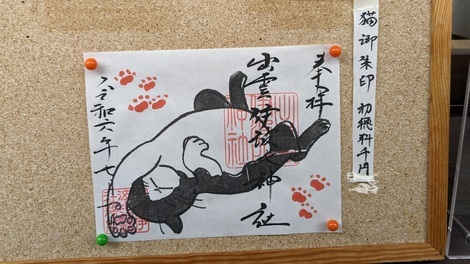 猫御朱印 初穂料千円
奉拝
出雲伊波比神社
令和六年七月